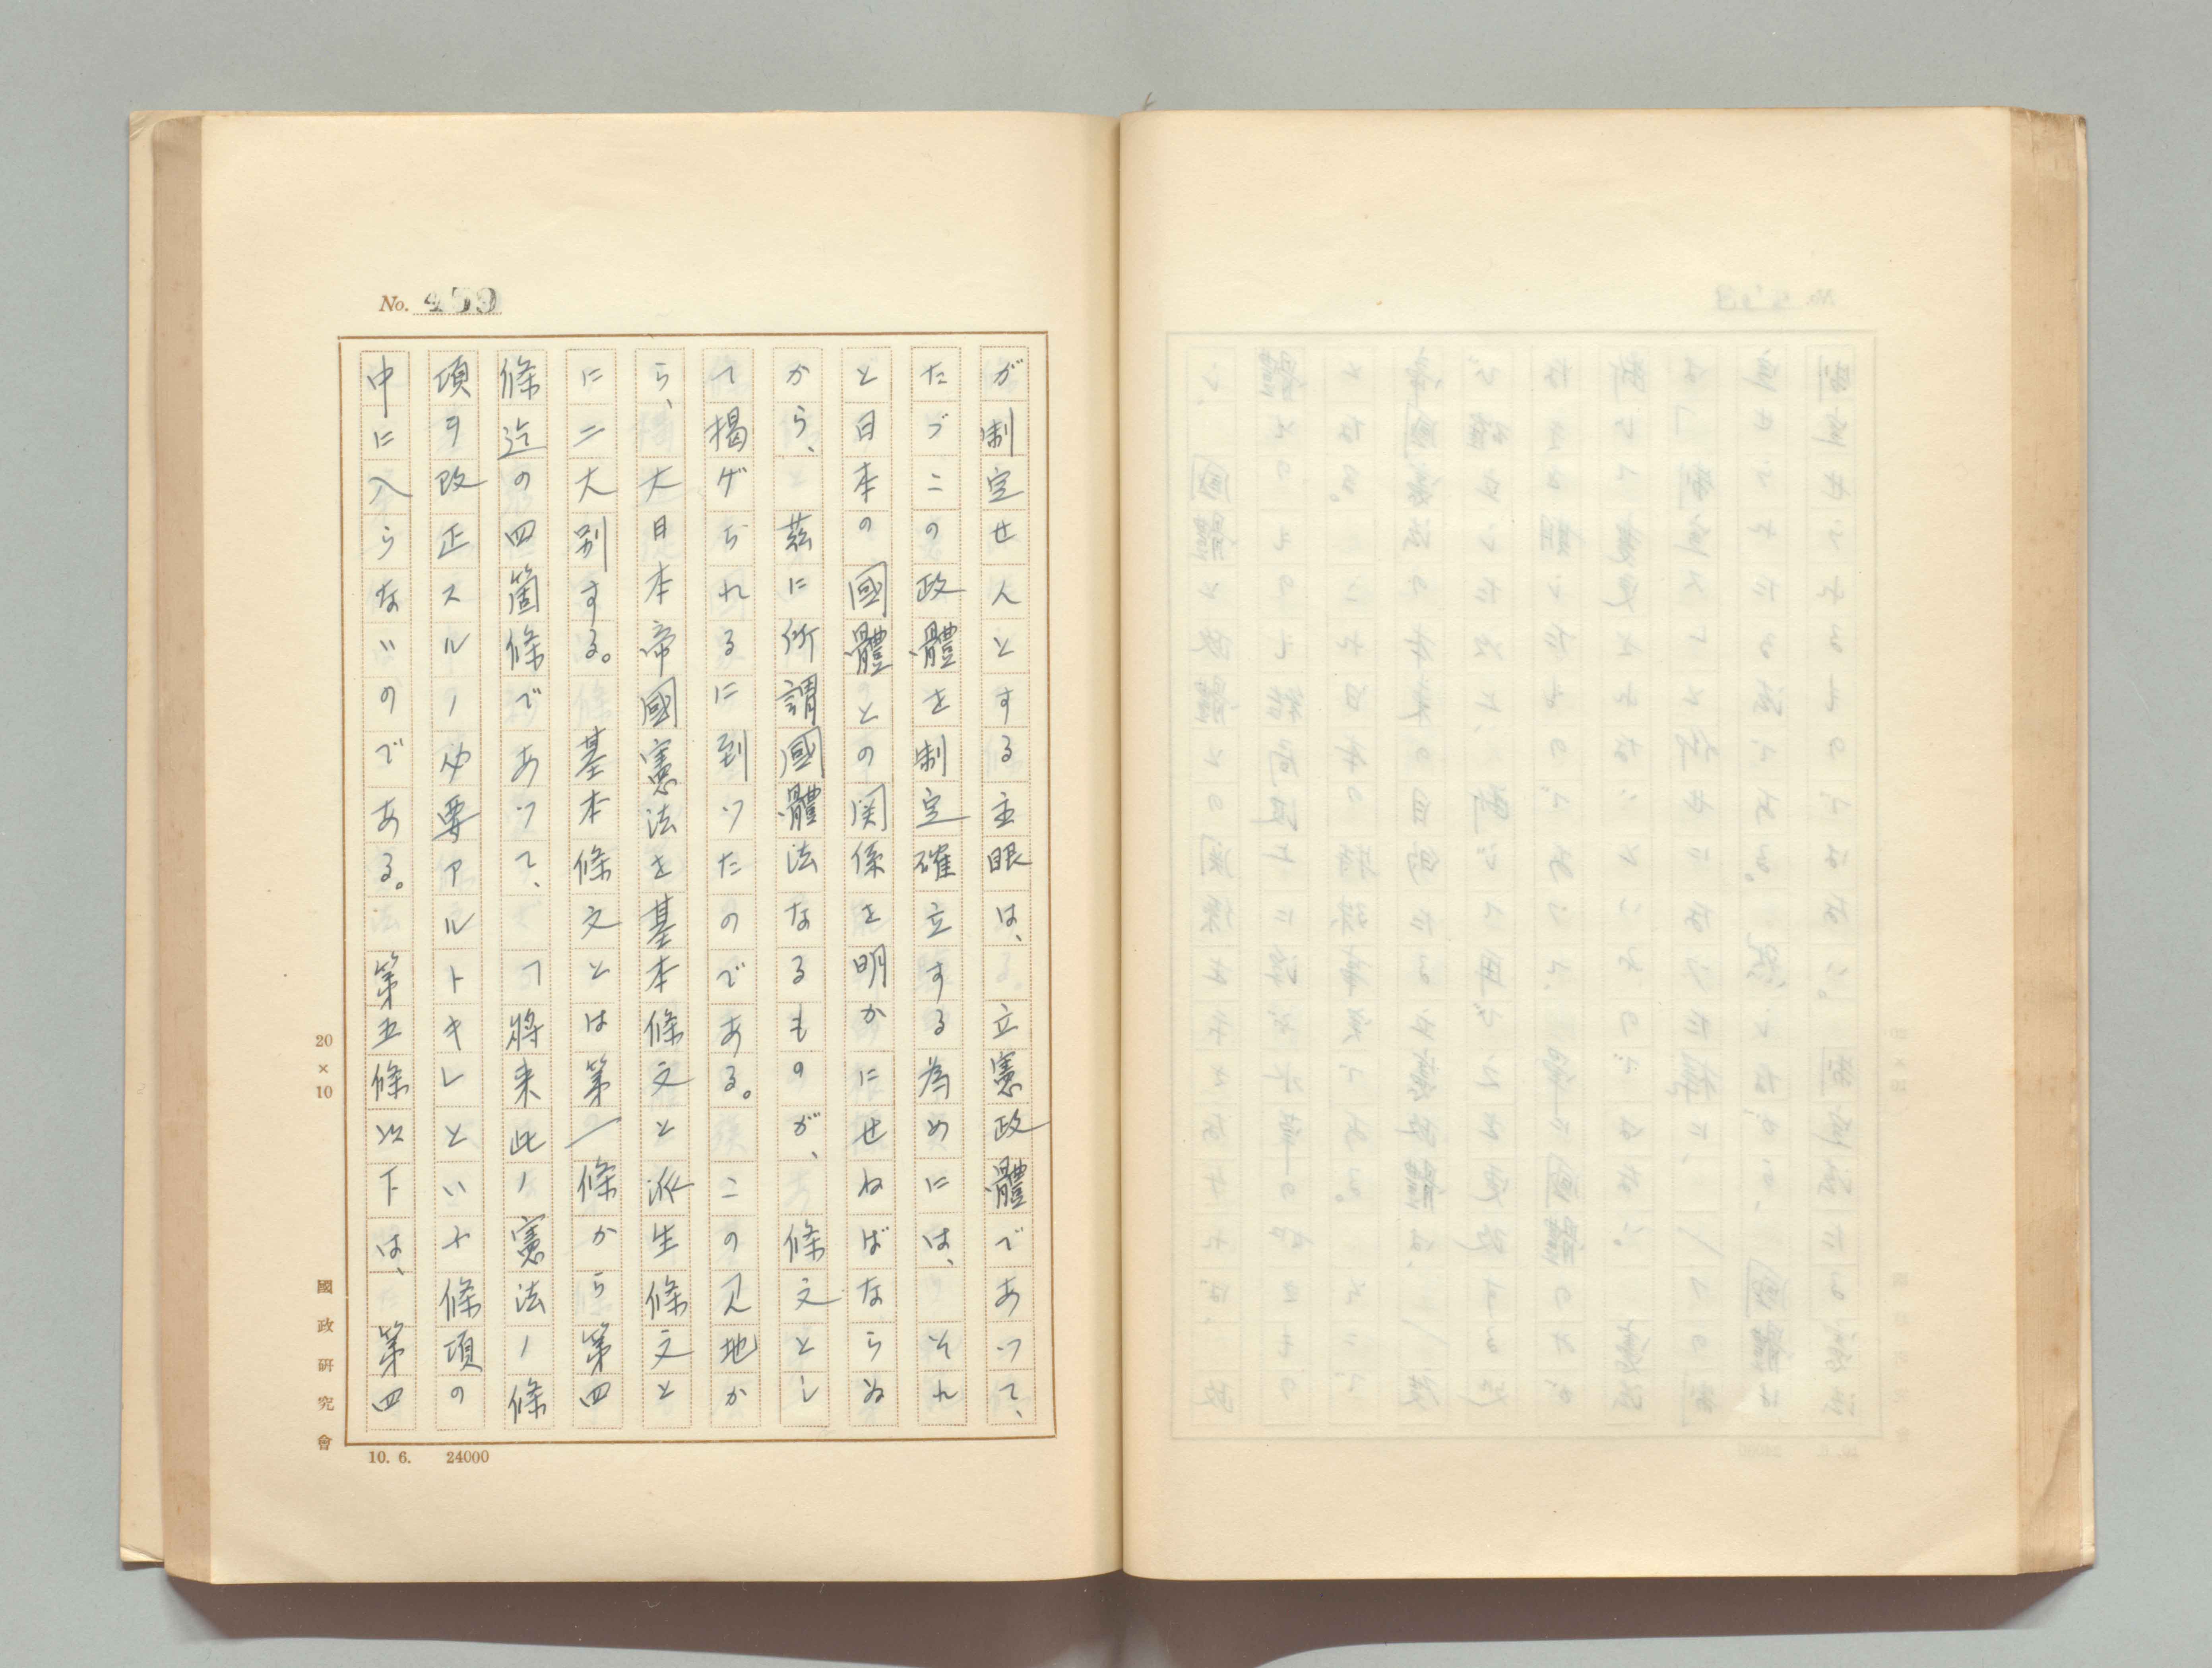 No. 459
が制定せんとする主眼は、立憲政體であつて、
たゞこの政體を制定確立する為めには、それ
と日本の國體との関係を明かにせねばならぬ
から、茲に所謂國體法なるものが、條文とし
て揭げられるに到ツたのである。この見地か
ら、大日本帝國憲法を基本條文と派生條文と
に二大別する。基本條文とは第一條から第四
條迄の四箇條であツて、「將来此ノ憲法ノ條
項ヲ改正スルノ必要アルトキレといふ條項の
中に入らないのである。第五條以下は、第四
20×10
國政硏究會
10. 6. 24000